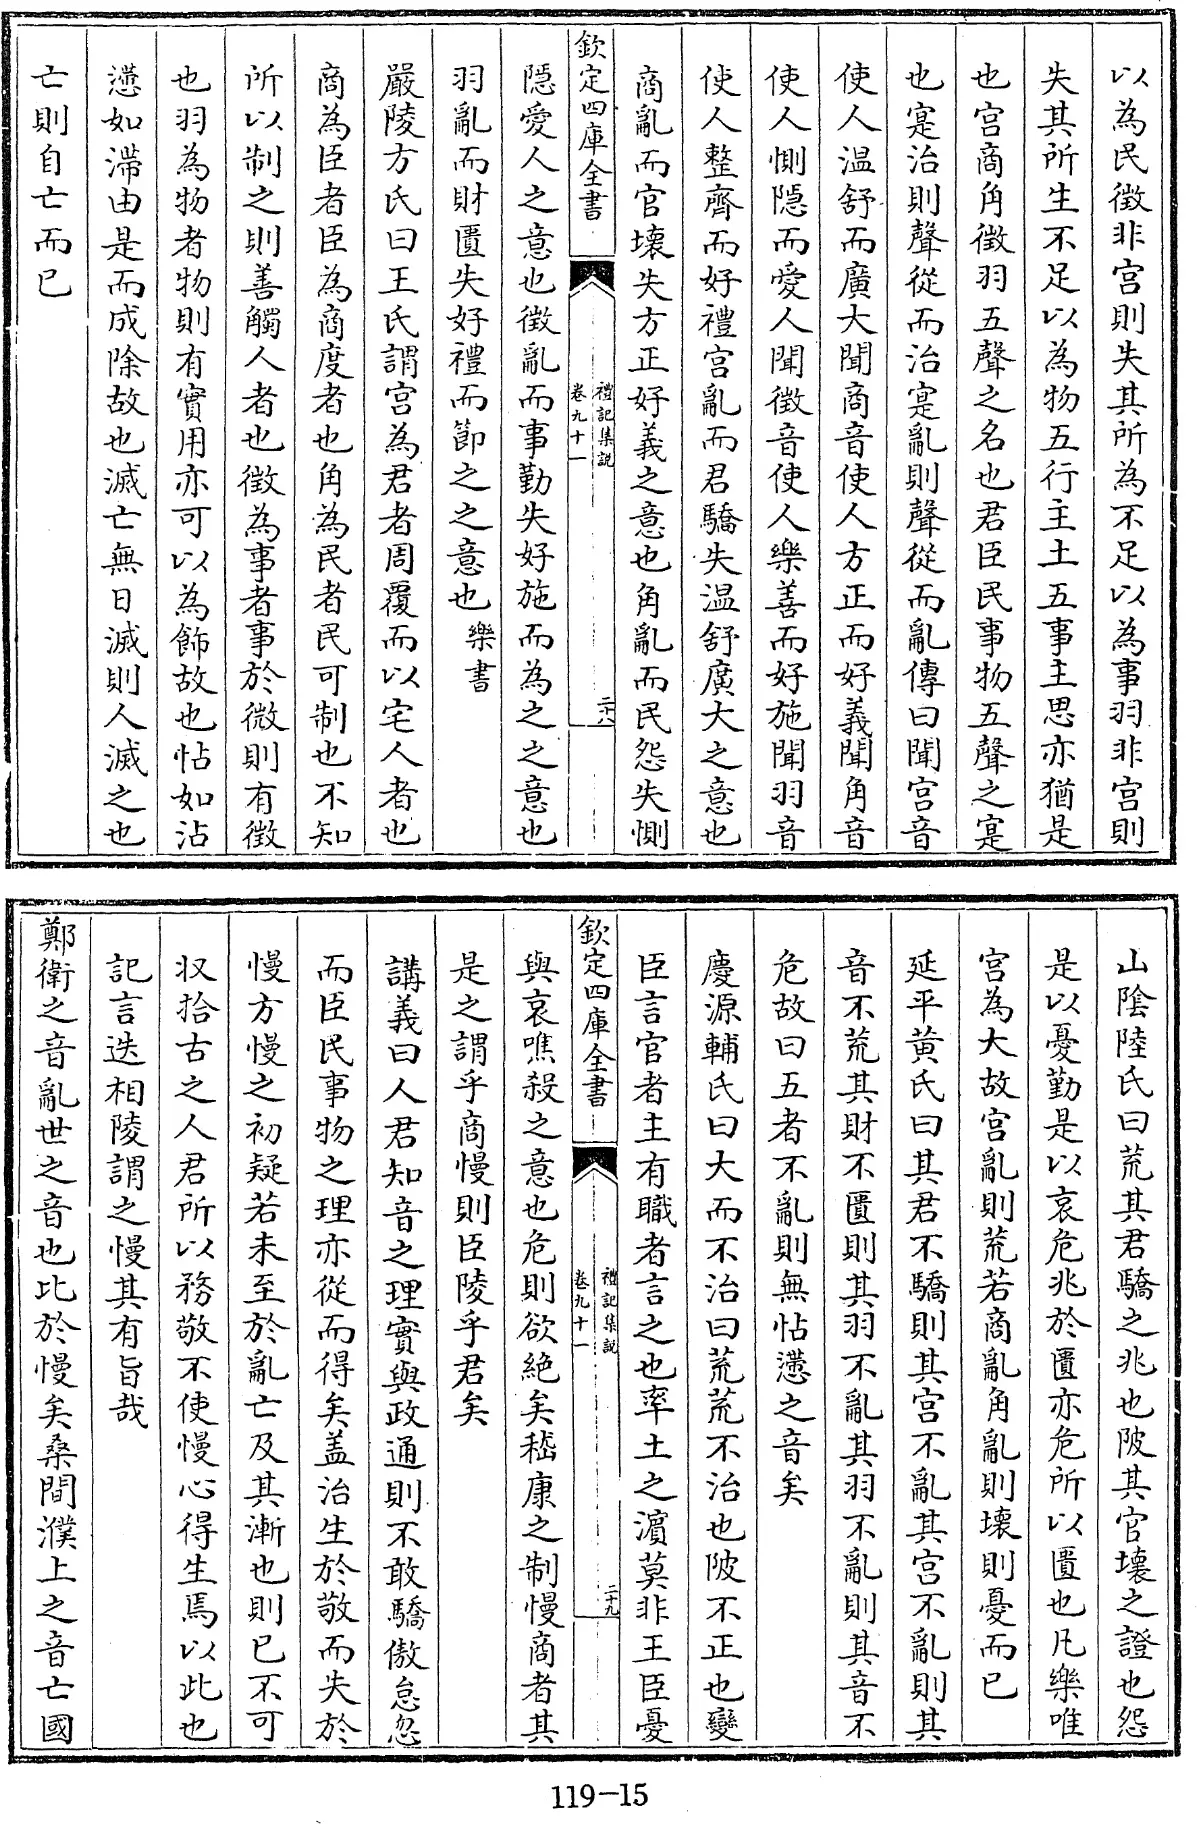 以為民徵非宮則失其所為不足以為事羽非宮則
失其所生不足以為物五行主土五事主思亦猶是
也宮商角徵羽五聲之名也君臣民事物五聲之寔
也寔治則聲從而治寔亂則聲從而亂傳曰聞宮音
使人温舒而廣大聞商音使人方正而好義聞角音
使人惻隠而愛人聞徵音使人樂善而好施聞羽音
使人整齊而好禮宮亂而君驕失温舒廣大之意也
商亂而官壞失方正好義之意也角亂而民怨失惻
欽定四庫全書
禮記集説
卷九十一
二十八
隠愛人之意也徵亂而事勤失好施而為之之意也
羽亂而財匱失好禮而節之之意也樂書
嚴陵方氏曰王氏謂宮為君者周覆而以宅人者也
商為臣者臣為商度者也角為民者民可制也不知
所以制之則善觸人者也徵為事者事於微則有徵
也羽為物者物則有實用亦可以為飾故也怗如沾
懘如滯由是而成除故也滅亡無日滅則人滅之也
亡則自亡而已
山陰陸氏曰荒其君驕之兆也陂其官壞之證也怨
是以憂勤是以哀危兆於匱亦危所以匱也凡樂唯
宮為大故宮亂則荒若商亂角亂則壞則憂而已
延平黄氏曰其君不驕則其宮不亂其宮不亂則其
音不荒其財不匱則其羽不亂其羽不亂則其音不
危故曰五者不亂則無怗懘之音矣
慶源輔氏曰大而不治曰荒荒不治也陂不正也變
臣言官者主有職者言之也率土之濵莫非王臣憂
欽定四庫全書
禮記集説
卷九十一
二十九
與哀噍殺之意也危則欲絶矣嵇康之制慢商者其
是之謂乎商慢則臣陵乎君矣
講義曰人君知音之理實與政通則不敢驕傲怠忽
而臣民事物之理亦從而得矣盖治生於敬而失於
慢方慢之初疑若未至於亂亡及其漸也則已不可
収拾古之人君所以務敬不使慢心得生焉以此也
記言迭相陵謂之慢其有旨哉
鄭衛之音亂世之音也比於慢矣桑間濮上之音亡國
119-15